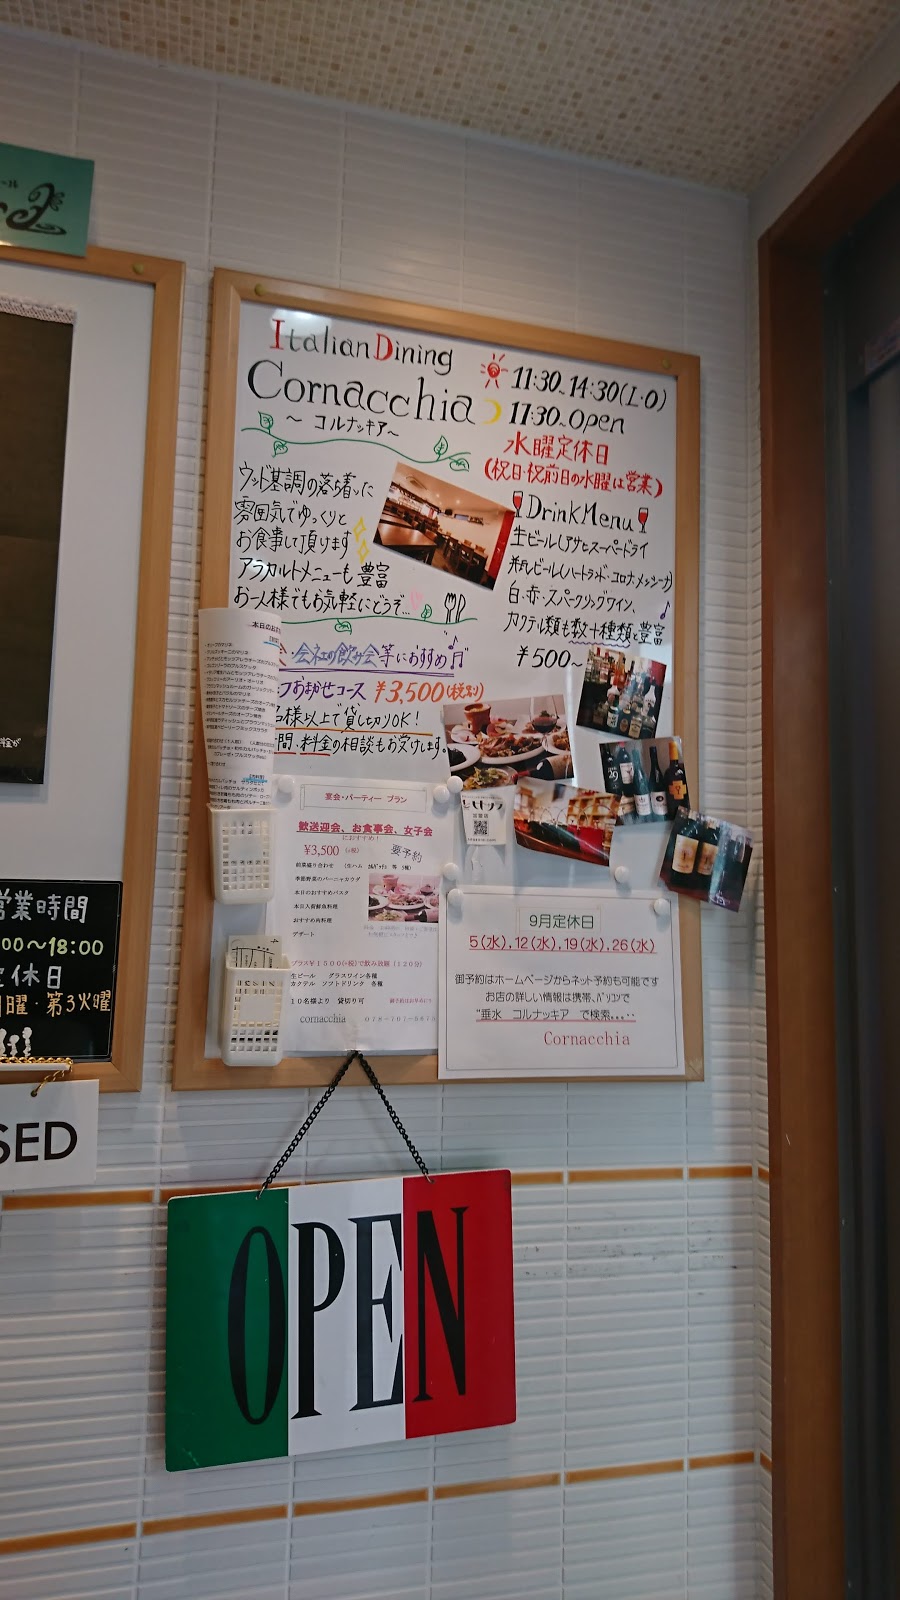 Italian Dining
Cornacchia
～ コルナッキア～
11:30～14:30(L・O)
17:30～Open
水曜定休日
(祝日・祝前日の水曜は営業)
ウッド基調の落ち着いた
雰囲気でゆっくりと
お食事して頂けます
アラカルトメニューも豊富
お一人様でもお気軽にどうぞ...
Drink Menu
生ビール(アサヒスーパードライ
瓶ビール(ハートランド・コロナ・メッシーナ)
白・赤・スパークリングワイン、
カクテル類も数十種類と豊富
¥500～
・会社の飲み会等におすすめ♪
フおまかせコース ¥3,500(税別)
名様以上で貸し切りOK!
間、料金の相談もお受けします。
本日のおす
宴会・パーティー プラン
歓送迎会、お食事会、女子会
におすすめ!
¥3,500 (+税) 要予約
季節野菜のバーニャカウダ
本日のおすすめパスタ
本日入荷鮮魚料理
おすすめ肉料理
デザート
プラス¥1500(+税)で飲み放題 (120分)
生ビール グラスワイン各種
カクテル ソフトドリンク 各種
10名様より 貸切り可
cornacchia
9月定休日
5(水),12(水),19(水),26(水)
御予約はホームページからネット予約も可能です
お店の詳しい情報は携帯、パソコンで
"垂水 コルナッキア で検索...
Cornacchia
OPEN
営業時間
00～18:00
定休日
曜・第3火曜
SED